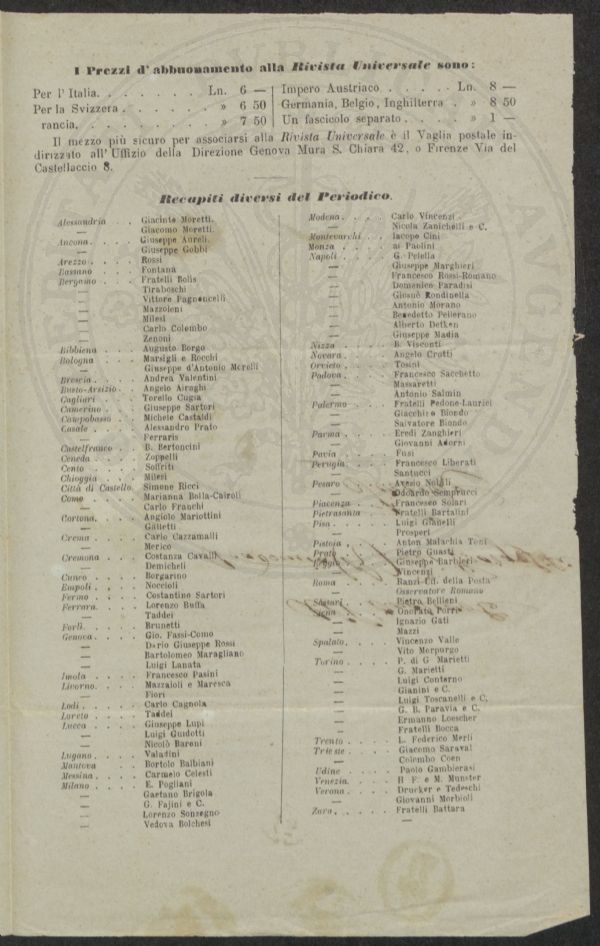 I Prezzi d'abbuonamento alla Rivista Universale sono:
Per l'Italia. . . . . . . Ln. 6 —
Per la Svizzera . . . . . . » 6 50
rancia, . . . . . . . . » 7 50
Impero Austriaco . . . . . Ln. 8 —
Germania, Belgio, Inghilterra . » 8 50
Un fascicolo separato . . . . » 1 —
Il mezzo più sicuro per associarsi alla Rivista Universale è il Vaglia postale in-
dirizzato all'Uffizio della Direzione Genova Mura S. Chiara 42, o Firenze Via del
Castellaccio 8.
Recapiti diversi del Periodico.
Alessandria . . Giacinto Moretti.
— Giacomo Moretti.
Ancona. . . . Giuseppe Aureli.
— Giuseppe Gobbi
Arezzo . . . . Rossi
Bassano . . . Fontana
Bergamo . . . Fratelli Bolis
— Tiraboschi
— Vittore Pagnoncelli
— Mazzoleni
— Milesi
— Carlo Colombo
— Zenoni
Bibbiena . . . Augusto Borgo
Bologna . . . Marsigli e Rocchi
— Giuseppe d'Antonio Morelli
Brescia . . . . Andrea Valentini
Busto-Arsizio . Angelo Airaghi
Cagliari . . . Torello Cugia
Camerino . . . Giuseppe Sartori
Campobasso . . Michele Castaldi
Casale . . . . Alessandro Prato
— Ferraris
Castelfranco . . B. Bertoncini
Ceneda . . . . Zoppelli
Cento . . . . Soffriti
Chioggia . . . Milesi
Città di Castello. Simone Ricci
Como . . . . Marianna Bolla-Cairoli
— Carlo Franchi
Cortona. . . . Angiolo Mariottini
— Gilletti
Crema . . . . Carlo Cazzamalli
— Merico
Cremona . . . Costanza Cavalli
— Demicheli
Cuneo . . . . Borgarino
Empoli . . . . Noccioli
Fermo . . . . Costantino Sartori
Ferrara. . . . Lorenzo Buffa
— Taddei
Forlì. . . . . Brunetti
Genova. . . . Gio. Fassi-Como
— Dario Giuseppe Rossi
— Bartolomeo Maragliano
— Luigi Lanata
Imola . . . . Francesco Pasini
Livorno. . . . Mazzaioli e Maresca
— Fiori
Lodi . . . . . Carlo Cagnola
Loreto . . . . Taddei
Lucca . . . . Giuseppe Lupi
— Luigi Guidotti
— Nicolò Bareni
Lugano . . . . Valadini
Mantova Bortolo Balbiani
Messina . . . . Carmelo Celesti
Milano . . . . E. Pogliani
— Gaetano Brigola
— G. Fajini e C.
— Lorenzo Sonzogno
— Vedova Bolchesi
Modena. . . . Carlo Vincenzi
— Nicola Zanichelli e C.
Montevarchi . . Iacopo Cini
Monza . . . . ai Paolini
Napoli . . . . G. Pelella
— Giuseppe Marghieri
— Francesco Rossi-Romano
— Domenico Paradisi
— Giosuè Rondinella
— Antonio Morano
— Benedetto Pellerano
— Alberto Detken
— Giuseppe Madia
Nizza . . . . B. Visconti
Novara. . . . Angelo Crotti
Orvieto . . . . Tosini
Padova. . . . Francesco Sacchetto
— Massaretti
— Antonio Salmin
Palermo . . . Fratelli Pedone-Lauriel
— Giacchino Biondo
— Salvatore Biondo
Parma. . . . Eredi Zanghieri
— Giovanni Adorni
Pavia . . . . Fusi
Perugia. . . . Francesco Liberati
— Santucci
Pesaro . . . .
— Odoardo Semprucci
Piacenza . . . Francesco Solari
Pietrasanta Fratelli Bartalini
Pisa. . . . . Luigi Gianelli
— Prosperi
Pistoia . . . . Anton Malachia Toni
Prato Pietro Guasti
Giuseppe Barbieri
— Vincenzi
Roma . . . . Ranzi Uff. della Posta
— Osservatore Romano
Pietro Bellieni
Siena Onorato Porri
— Ignazio Gati
— Mazzi
Spalato. . . . Vincenzo Valle
— Vito Morpurgo
Torino. . . . P. di G. Marietti
— G. Marietti
— Luigi Conterno
— Gianini e C.
— Luigi Toscanelli e C.
— G. B. Paravia e C.
— Ermanno Loescher
— Fratelli Bocca
Trento . . . . L. Federico Merli
Trieste . . . . Giacomo Saraval
— Colombo Coen
Udine . . . . Paolo Gambierasi
Venezia. . . . H F. e M. Munster
Verona . . . . Drucker e Tedeschi
— Giovanni Morbioli
Zara. . . . . Fratelli Battara
—